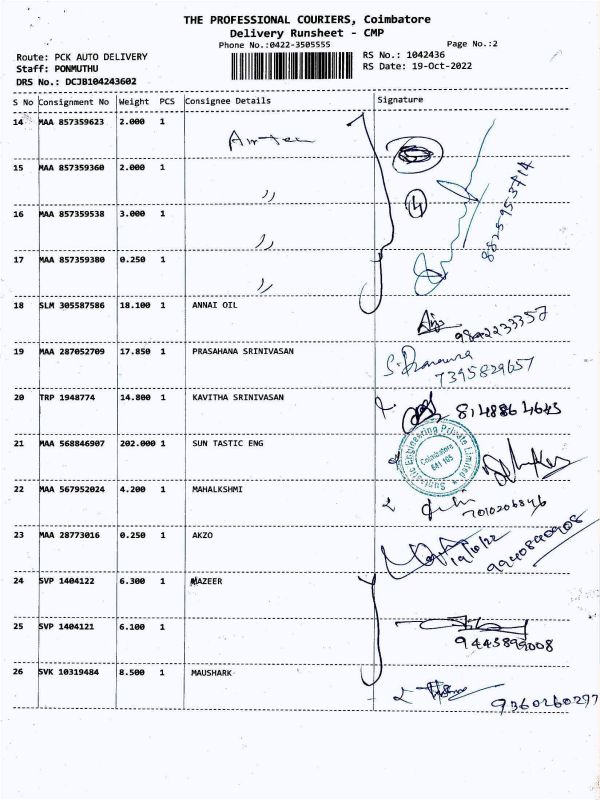 THE PROFESSIONAL COURIERS, Coimbatore
Delivery Runsheet - CMP
Phone No.:0422-3505555
Page No.:2
Route: PCK AUTO DELIVERY
RS No.: 1042436
Staff: PONMUTHU
RS Date: 19-Oct-2022
DRS No.: DCJB104243602
S No Consignment No Weight PCS Consignee Details Signature
14 MAA 857359623 2.000 1
15 MAA 857359360 2.000 1 〃
16 MAA 857359538 3.000 1 〃 4
17 MAA 857359380 0.250 1 〃
18 SLM 305587586 18.100 1 ANNAI OIL
9842233357
19 MAA 287052709 17.850 1 PRASAHANA SRINIVASAN
7395829657
20 TRP 1948774 14.800 1 KAVITHA SRINIVASAN
8148864645
21 MAA 568846907 202.000 1 SUN TASTIC ENG
Engineering Private Limited
Coimbatore
641 105
22 MAA 567952024 4.200 1 MAHALKSHMI
7010206846
23 MAA 28773016 0.250 1 AKZO
19/10/22
9940840908
24 SVP 1404122 6.300 1 NAZEER
25 SVP 1404121 6.100 1
9445899008
26 SVK 10319484 8.500 1 MAUSHARK
9360260297